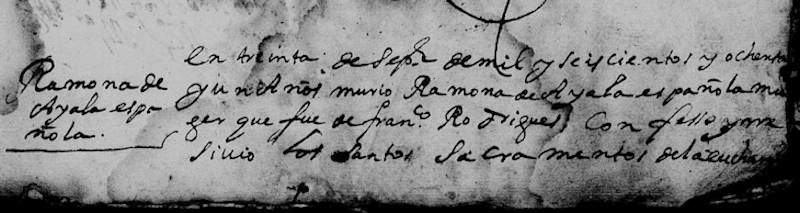 Ramona de
Ayala espa
ñola.
en treinta de Sepe. de mil y seiscientos y ochenta
y un Años murio Ramona de Ayala española mu
ger que fue de franco. Rodrigues, Confesso y rre
siuio los santos Sacramentos de la